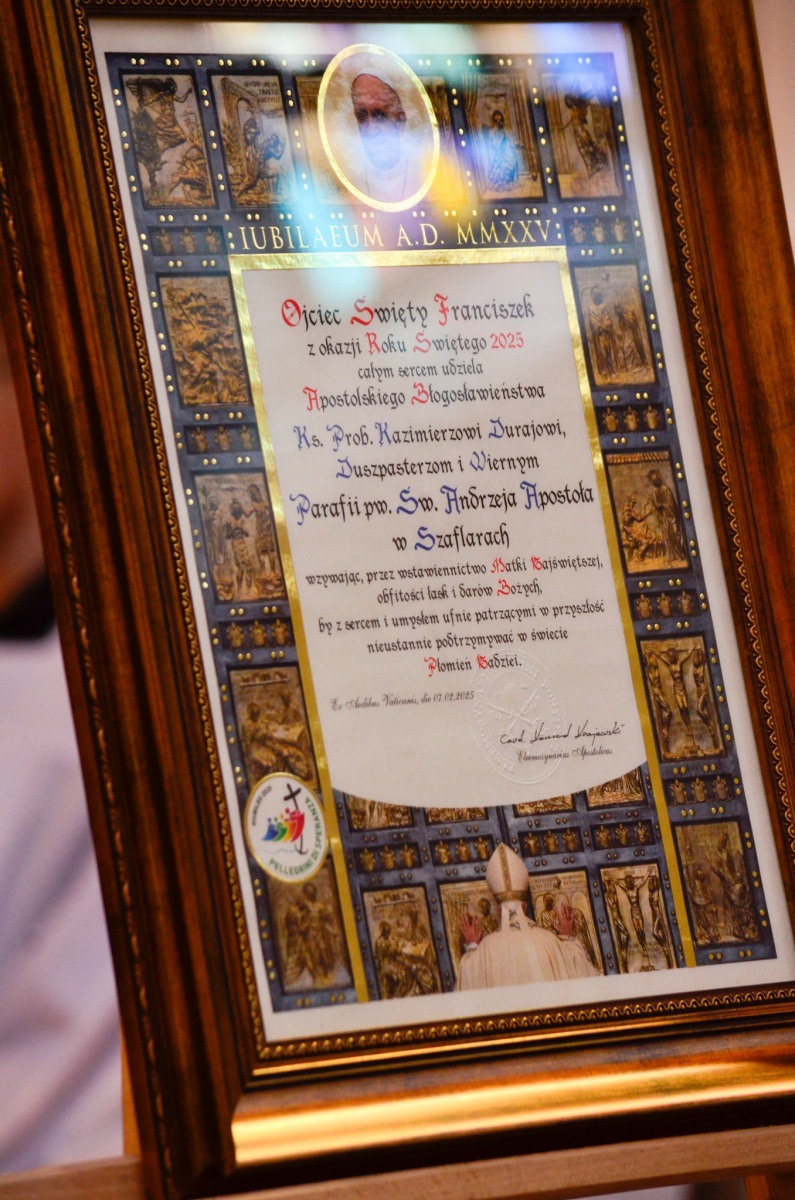 IUBILAEUM A.D. MMXXV
Ojciec Święty Franciszek
z okazji Roku Świętego 2025
całym sercem udziela
Apostolskiego Błogosławieństwa
Ks. Prob. Kazimierzowi Durajowi,
Duszpasterzom i Wiernym
Parafii pw. Św. Andrzeja Apostoła
w Szaflarach
wzywając, przez wstawiennictwo Matki Najświętszej,
obfitości łask i darów Bożych,
by z sercem i umysłem ufnie patrzącymi w przyszłość
nieustannie podtrzymywać w świecie
Płomień Nadziei.
Ex Aedibus Vaticanis, die 07.02.2025
Card. Konrad Krajewski
Eleemosynarius Apostolicus
PELLEGRINI DI SPERANZA